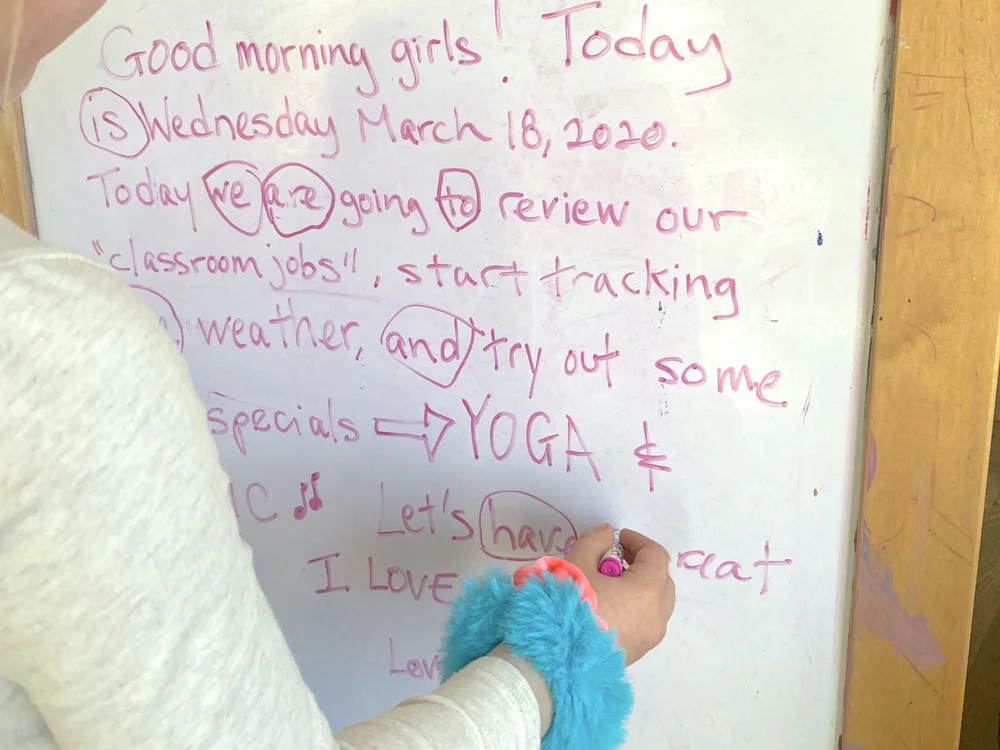 Good morning girls! Today
is Wednesday March 18, 2020.
Today we are going to review our
"classroom jobs", start tracking
weather, and try out some
specials ⇒ YOGA &
IC ♫ Let's have reat
I LOVE
Lov